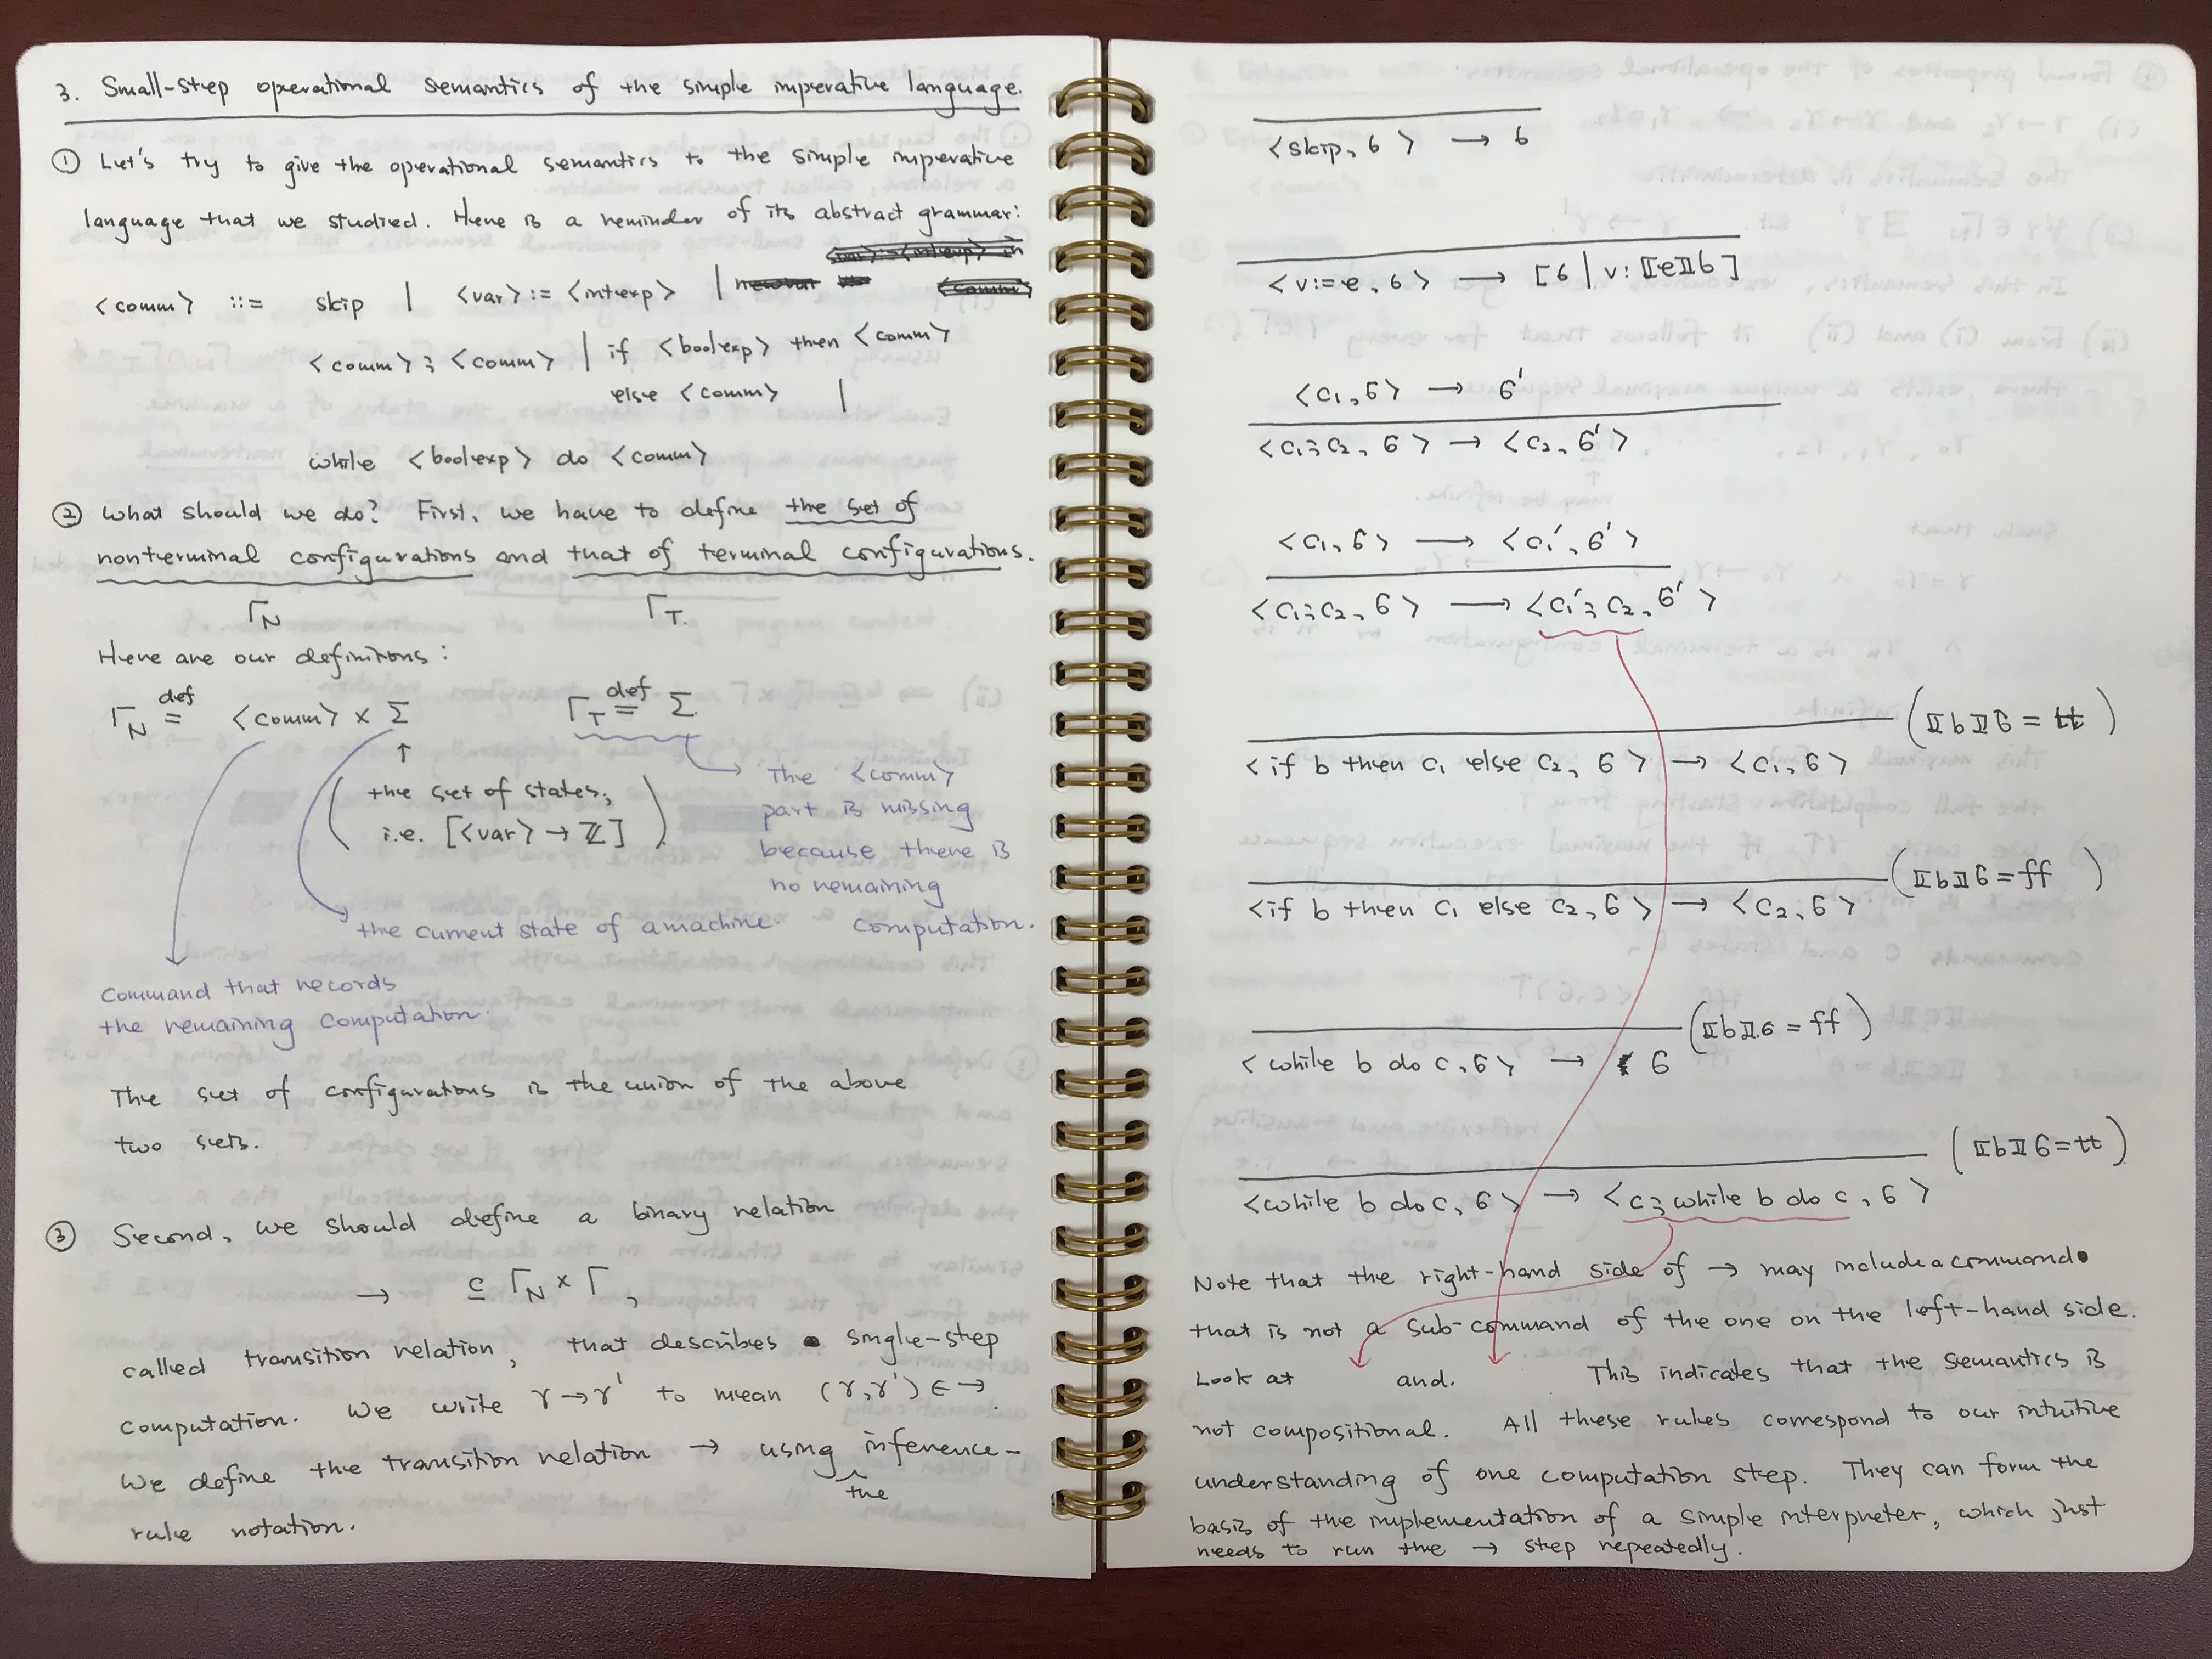 3. Small-step operational semantics of the simple imperative language.
① Let's try to give the operational semantics to the simple imperative
language that we studied. Here is a reminder of its abstract grammar:
<comm> ::= skip | <var> := <intexp> |
<comm> ; <comm> | if <boolexp> then <comm>
else <comm> |
while <boolexp> do <comm>
② What should we do? First, we have to define the set of
nonterminal configurations and that of terminal configurations.
Γ_N Γ_T.
Here are our definitions:
Γ_N def= <comm> × Σ Γ_T def= Σ
↑
( the set of states;
i.e. [<var> → ℤ] )
The <comm>
part is missing
because there is
no remaining
computation.
the current state of a machine.
Command that records
the remaining computation.
The set of configurations is the union of the above
two sets.
③ Second, we should define a binary relation
→ ⊆ Γ_N × Γ,
called transition relation, that describes single-step
computation. We write γ → γ' to mean (γ, γ') ∈ →.
We define the transition relation → using the inference-
rule notation.
<skip, σ> → σ
<v:=e, σ> → [σ | v: ⟦e⟧σ]
<c₁, σ> → σ'
<c₁; c₂, σ> → <c₂, σ'>
<c₁, σ> → <c₁', σ'>
<c₁; c₂, σ> → <c₁'; c₂, σ'>
(⟦b⟧σ = tt)
<if b then c₁ else c₂, σ> → <c₁, σ>
(⟦b⟧σ = ff)
<if b then c₁ else c₂, σ> → <c₂, σ>
(⟦b⟧σ = ff)
<while b do c, σ> → σ
(⟦b⟧σ = tt)
<while b do c, σ> → <c; while b do c, σ>
Note that the right-hand side of → may include a command
that is not a sub-command of the one on the left-hand side.
Look at and. This indicates that the semantics is
not compositional. All these rules correspond to our intuitive
understanding of one computation step. They can form the
basis of the implementation of a simple interpreter, which just
needs to run the → step repeatedly.